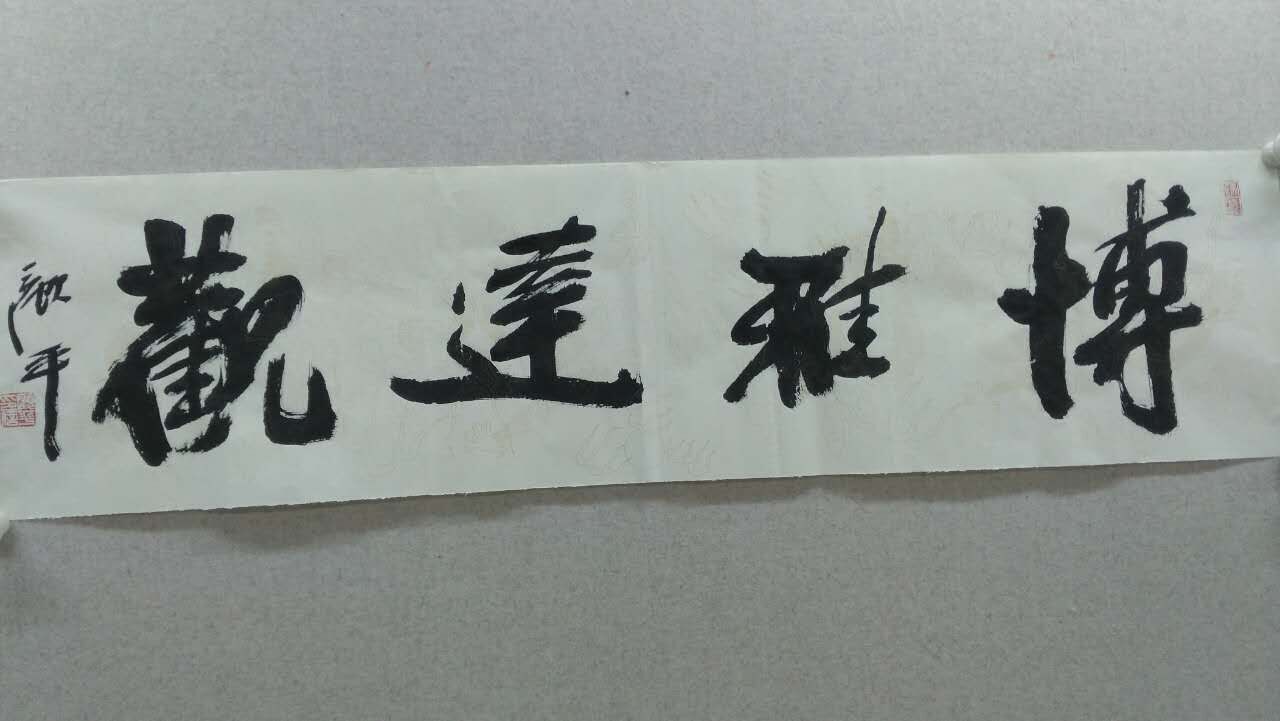 博雅達觀
平